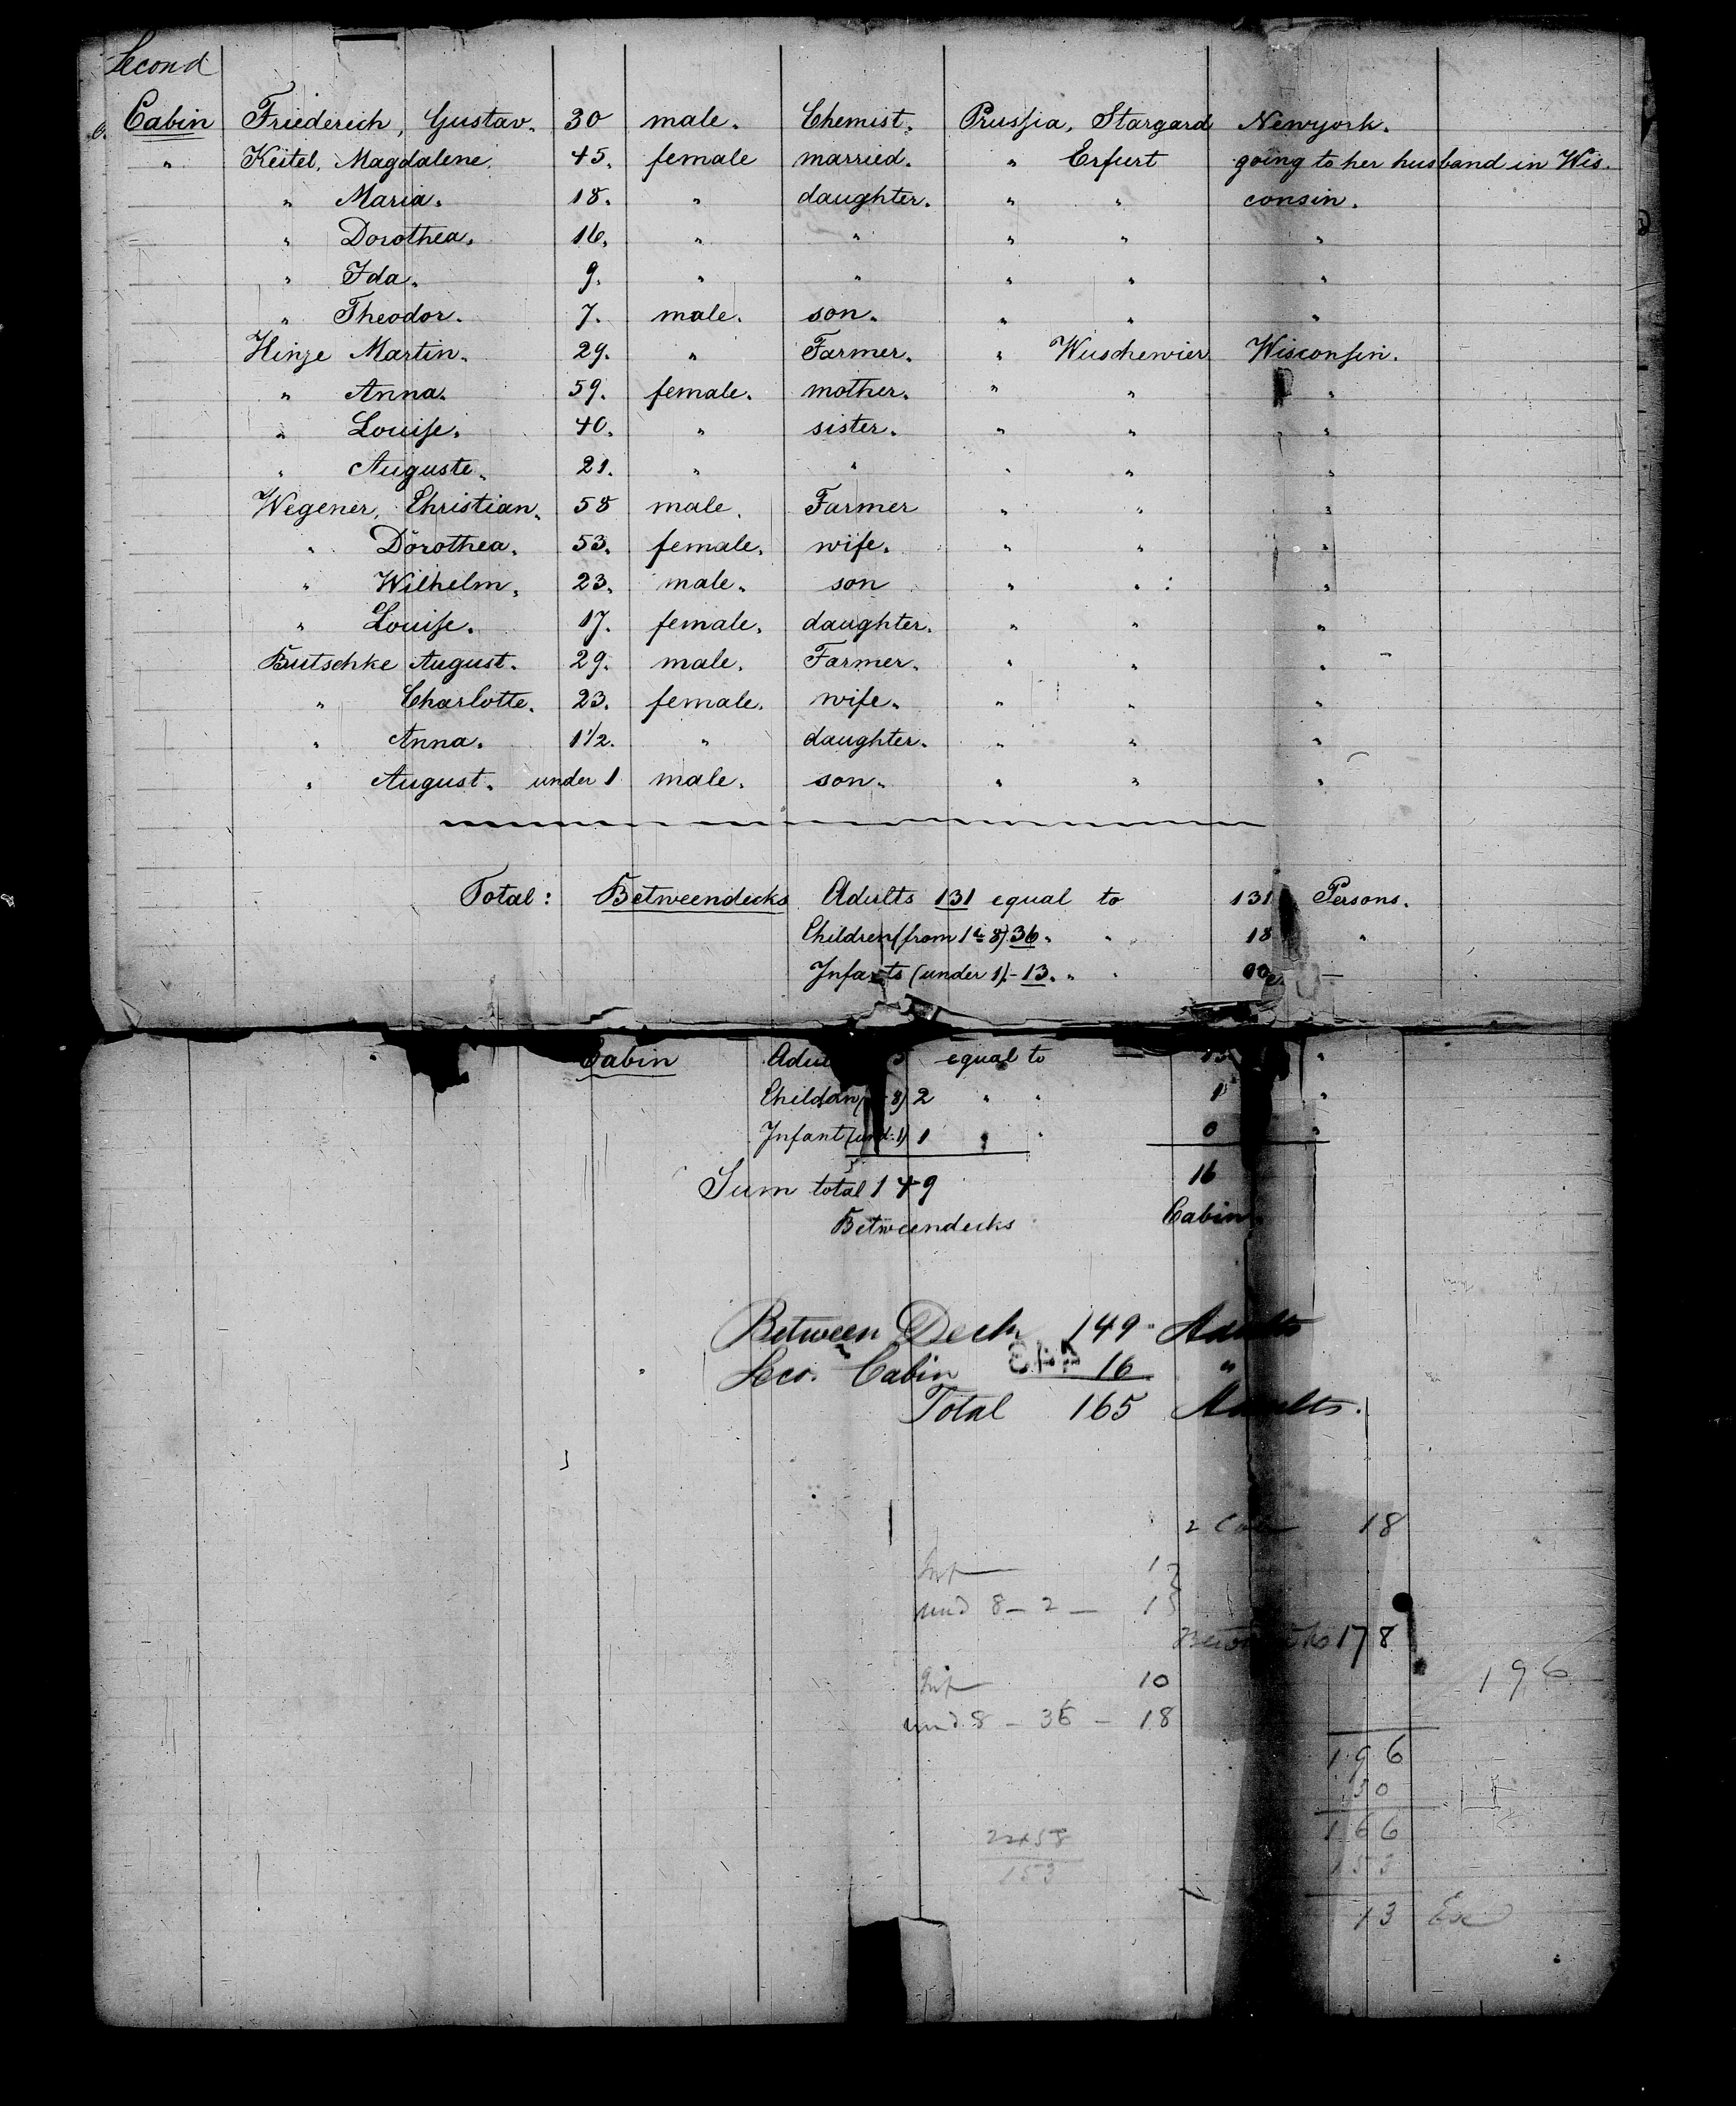 Second
Cabin Friederich, Gustav. 30 male. Chemist. Prussia, Stargard Newyork.
" Keitel, Magdalene. 45. female married. " Erfurt going to her husband in Wis-
" Maria. 18. " daughter. " " consin.
" Dorothea. 16. " " " " "
" Ida. 9. " " " " "
" Theodor. 7. male. son. " " "
Hinze Martin. 29. " Farmer. " Wuschewier Wisconsin.
" Anna. 59. female. mother. " " "
" Louise. 40. " sister. " " "
" Auguste. 21. " " " " "
Wegener, Christian. 58 male. Farmer " " "
" Dorothea. 53. female. wife. " " "
" Wilhelm. 23. male. son " " "
" Louise. 17. female. daughter. " " "
Butschke August. 29. male. Farmer. " " "
" Charlotte. 23. female. wife. " " "
" Anna. 1 1/2. " daughter. " " "
" August. under 1 male. son. " " "
Total: Betweendecks Adults 131 equal to 131 Persons.
Children (from 1-8) 36 " " 18 "
Infants (under 1) - 13. " "
Cabin equal to
Children 8) 2 " " 1 "
Infant (und. 1) 1 " " 0 "
Sum total 149 16
Betweendecks Cabin.
Between Deck 149 Adults
Seco. Cabin 16 "
Total 165 Adults.
2 Cab 18
Inf 1
und 8 - 2 - 1
178
Inf 10
und 8 - 36 - 18
196
196
30
166
153
153
13